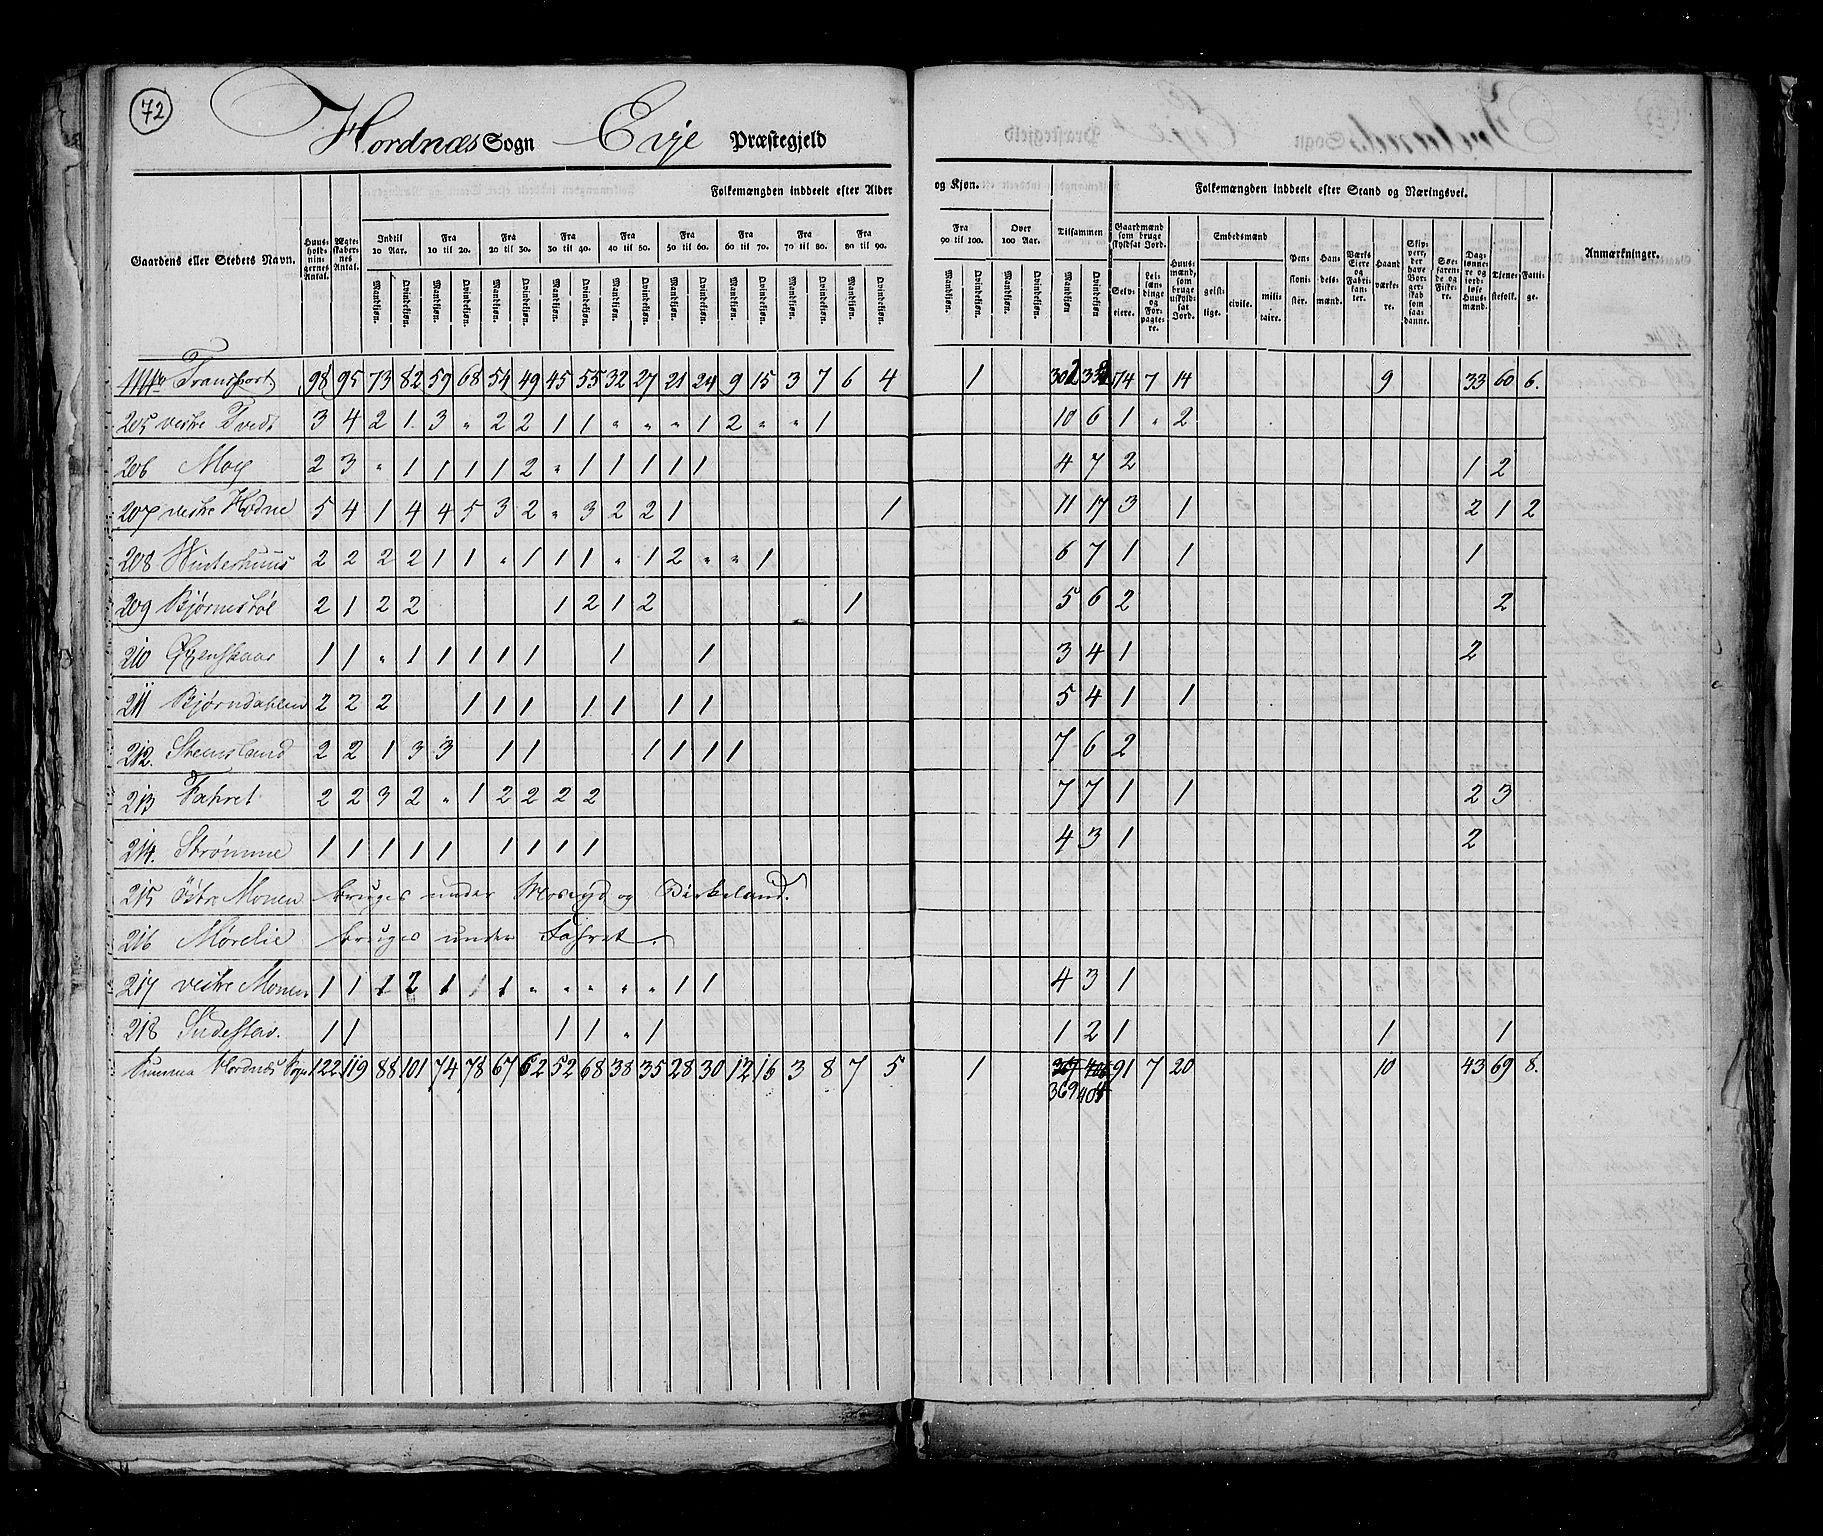 72
Hordnæs Sogn Evje Præstegjeld
Folkemængden inddeelt efter Alder og Kjøn. Folkemængden inddeelt efter Stand og Næringsvei.
Gaardens eller Stedets Navn. Huusholdningernes Antal. Ægteskabernes Antal. Indtil 10 Aar. Fra 10 til 20. Fra 20 til 30. Fra 30 til 40. Fra 40 til 50. Fra 50 til 60. Fra 60 til 70. Fra 70 til 80. Fra 80 til 90. Fra 90 til 100. Over 100 Aar. Tilsammen Gaardmænd som bruge skyldsat Jord. Huusmænd, som bruge uskyldsat Jord. Embedsmænd Pensionister. Handelsmænd. Værks Eiere og Fabrikanter. Haandværkere. Skippere, der have Borgerskab som saadanne. Søefarende og Fiskere. Daglønnere og jordløse Huusmænd. Tjenestefolk. Fattige. Anmærkninger.
Mandkjøn. Qvindekjøn. Mandkjøn. Qvindekjøn. Mandkjøn. Qvindekjøn. Mandkjøn. Qvindekjøn. Mandkjøn. Qvindekjøn. Mandkjøn. Qvindekjøn. Mandkjøn. Qvindekjøn. Mandkjøn. Qvindekjøn. Mandkjøn. Qvindekjøn. Mandkjøn. Qvindekjøn. Mandkjøn. Qvindekjøn. Mandkjøn. Qvindekjøn. Selveiere. Leilændinge og Forpagtere. geistlige. civile. militaire.
Transport 98 95 73 82 59 68 54 49 45 55 32 27 21 24 9 15 3 7 6 4 1 302 332 74 7 14 9 33 60 6.
205 vestre Tvedt 3 4 2 1 3 " 2 2 1 1 " " " 1 2 " " 1 10 6 1 " 2
206 Moy 2 3 " 1 1 1 1 2 " 1 1 1 1 1 4 7 2 1 2
207 vestre Hodne 5 4 1 4 4 5 3 2 " 3 2 2 1 1 11 17 3 1 2 1 2
208 Winterhuus 2 2 2 2 1 1 " 1 1 1 " 1 2 " " 1 6 7 1 1 1
209 Bjørnestøl 2 1 2 2 1 2 1 2 1 5 6 2 2
210 1 1 " 1 1 1 1 1 1 1 3 4 1 2
211 Bjørndahlen 2 2 2 1 1 1 1 1 1 1 5 4 1 1
212. Steensland 2 2 1 3 3 1 1 1 1 1 1 7 6 2
213 Fahret 2 2 3 2 " 1 2 2 2 2 7 7 1 1 2 3
214. Strømme 1 1 1 1 1 1 1 1 1 4 3 1 2
215 Østre Monen bruges under Moseyd og Birkeland.
216 Mørelie bruges under Fahret.
217 vestre Monen 1 1 1 2 1 1 1 " " " " " 1 1 4 3 1
218 1 1 1 1 " 1 1 2 1 1 1
Summa Hordnæs Sogn 122 119 88 101 74 78 67 62 52 68 38 35 28 30 12 16 3 8 7 5 1 91 7 20 10 43 69 8.
369 404